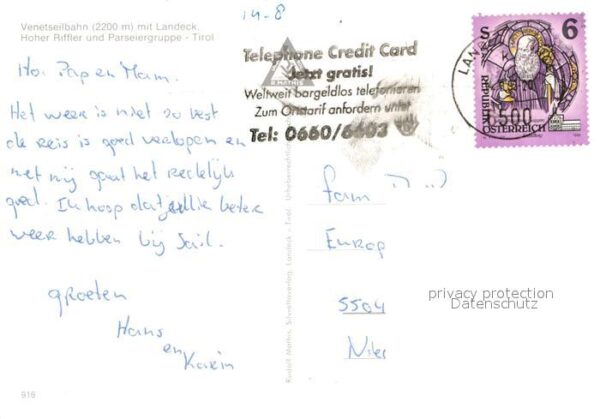 Venetseilbahn (2200 m) mit Landeck,
Hoher Riffler und Parseiergruppe - Tirol
14-8
Hoi Pap en Mam.
Het weer is niet zo best
de reis is goed verlopen en
met mij gaat het redelijk
goed. Ik hoop dat jullie beter
weer hebben bij Sail.
groeten
Hans
en
Karin
918
Telephone Credit Card
Jetzt gratis!
Weltweit bargeldlos telefonieren
Zum Ortstarif anfordern unter
Tel: 0660/6603
6500
S 6
REPUBLIK
ÖSTERREICH
Rudolf Mathis, Silvrettaverlag, Landeck - Tirol.
fam
Europ
5504
privacy protection
Datenschutz